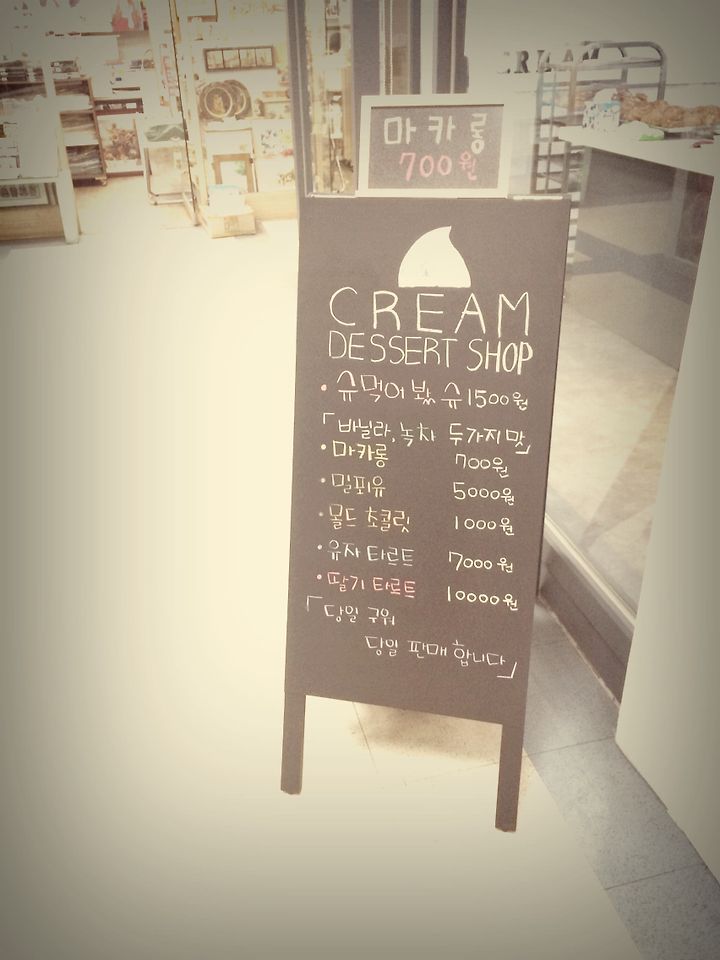 CREAM
마카롱
700원
CREAM
DESSERT SHOP
• 슈먹어 봤슈 1500원
「바닐라, 녹차 두가지맛」
• 마카롱 700원
• 밀푀유 5000원
• 몰드 초콜릿 1000원
• 유자 타르트 7000원
• 딸기 타르트 10000원
「당일 구워
당일 판매 합니다」